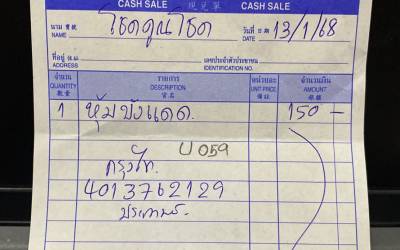 CASH SALE 現兌單 CASH SALE
นาม 寶號 NAME โชคคูณโชค วันที่ 日期 DATE 13/1/68
ที่อยู่ 住址 ADDRESS เลขประจำตัวประชาชน IDENTIFICATION NO.
จำนวน QUANTITY 數量 รายการ DESCRIPTION 貨名 หน่วยละ UNIT PRICE 價錢 จำนวนเงิน AMOUNT 銀額
1 หุ้มบังแดด 150 –
U059
กรุงไท
4013762129
ประเทพร์